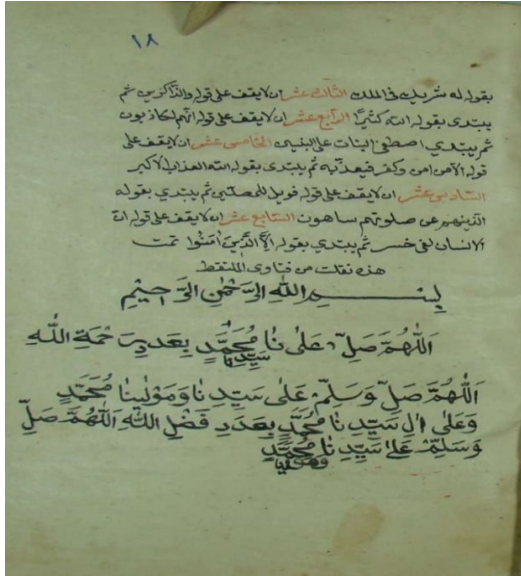 ١٨
بقوله له شريك في الملك الثالث عشر ان لا يقف على قوله والذاكرين ثم
يبتدى بقوله الله كثيرًا الرابع عشر ان لا يقف على قوله انهم لكاذبون
ثم يبتدى اصطفى البنات على البنين الخامس عشر ان لا يقف على
قوله الا من تولى وكفر فيعذبه ثم يبتدى بقوله الله العذاب الاكبر
السادس عشر ان لا يقف على قوله فويل للمصلين ثم يبتدي بقوله
الذينهم عن صلوتهم ساهون السابع عشر ان لا يقف على قوله ان
الانسان لفى خسر ثم يبتدي بقوله اِلَّا الَّذِينَ اٰمَنُوا تمت
هذه نقلت من فتاوى الملتقط
بِسْــــمِ اللّٰهِ الرَّحْمٰنِ الرَّحِيمِ
اَللّٰهُمَّ صَلِّ عَلٰى سَيِّدِنَا مُحَمَّدٍ بِعَدَدِ رَحْمَةِ اللّٰهِ
اَللّٰهُمَّ صَلِّ وَسَلِّمْ عَلٰى سَيِّدِنَا وَمَوْلٰينَا مُحَمَّدٍ
وَعَلٰى اٰلِ سَيِّدِنَا مُحَمَّدٍ بِعَدَدِ فَضْلِ اللّٰهِ اَللّٰهُمَّ صَلِّ
وَسَلِّمْ عَلٰى سَيِّدِنَا مُحَمَّدٍ